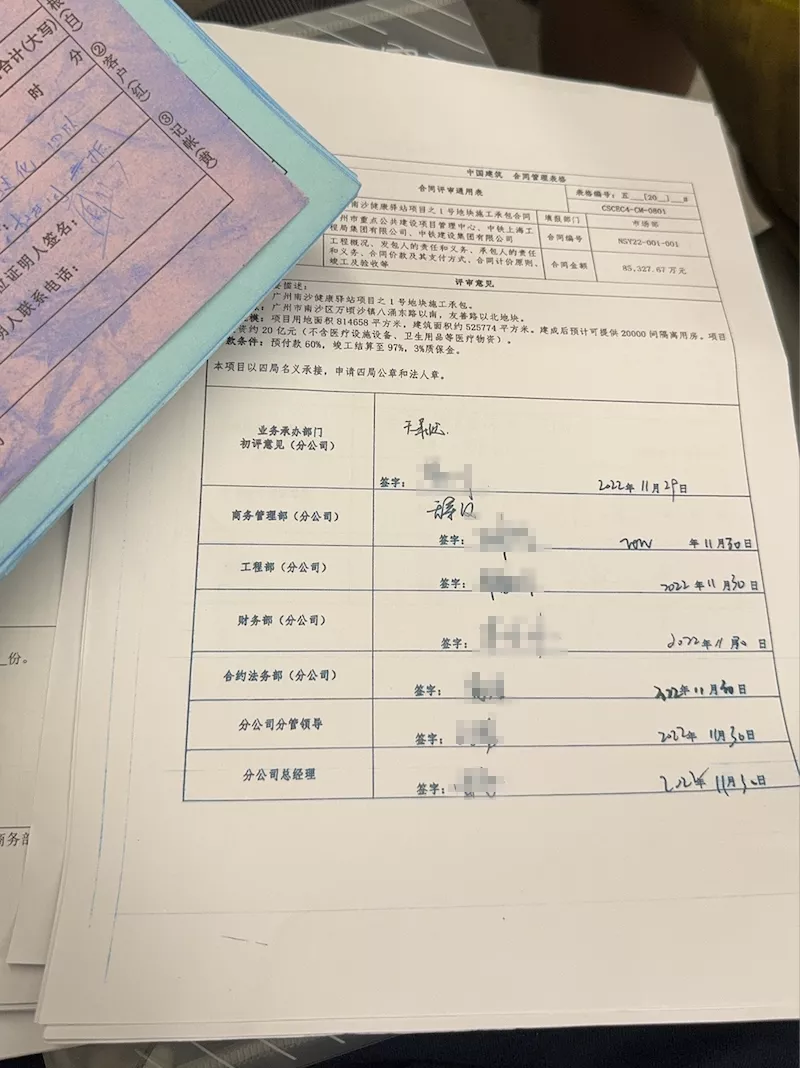 合计(大写)
根(白)
②客户(红)
③记帐(黄)
时
分
位证明人签名：
明人联系电话：
份。
商务部
中国建筑 合同管理表格
合同评审通用表
表格编号：五___[20__]___#
CSCEC4-CM-0801
南沙健康驿站项目之1号地块施工承包合同
填报部门
市场部
州市重点公共建设项目管理中心、中铁上海工
程局集团有限公司、中铁建设集团有限公司
合同编号
NSY22-001-001
工程概况、发包人的责任和义务、承包人的责任
和义务、合同价款及其支付方式、合同计价原则、
竣工及验收等
合同金额
85,327.67 万元
评审意见
要描述：
广州南沙健康驿站项目之1号地块施工承包。
广州市南沙区万顷沙镇八涌东路以南，友善路以北地块。
模：项目用地面积 814658 平方米，建筑面积约 525774 平方米。建成后预计可提供 20000 间隔离用房。项目
资约 20 亿元（不含医疗设施设备、卫生用品等医疗物资）。
款条件：预付款 60%，竣工结算至 97%，3%质保金。
本项目以四局名义承接，申请四局公章和法人章。
业务承办部门
初评意见（分公司）
签字：
2022年 11月29日
商务管理部（分公司）
签字：
年 11月30日
工程部（分公司）
签字：
2022年 11月30日
财务部（分公司）
签字：
2022年 11月30日
合约法务部（分公司）
签字：
2022年 11月30日
分公司分管领导
签字：
2022年 11月30日
分公司总经理
签字：
2022年 11月30日